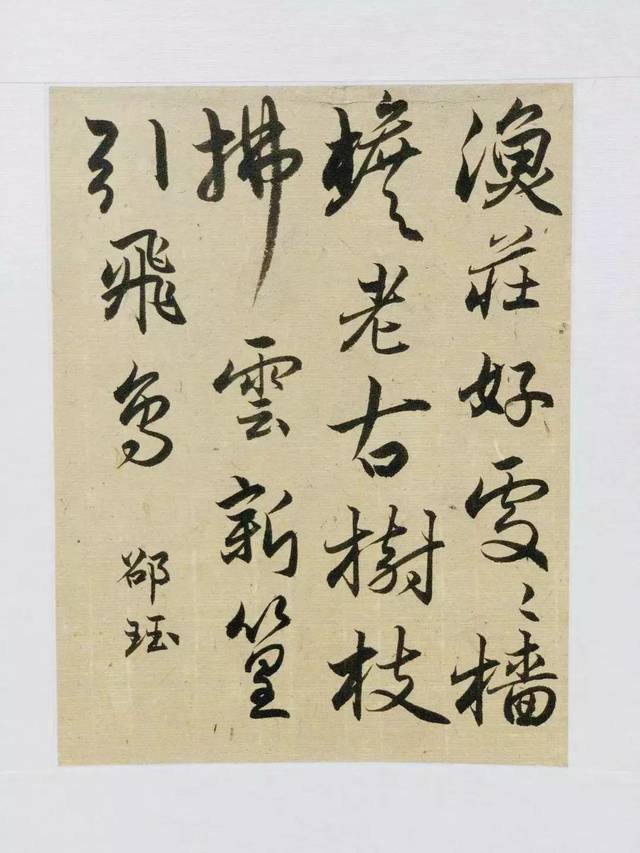 漁莊好處〻檣
老古樹枝
拂雲新篁
引飛鳥